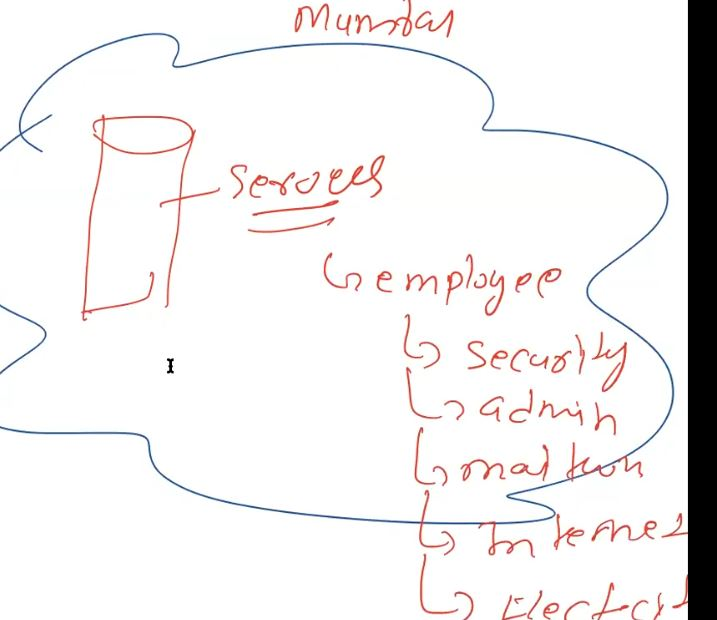 Mumbai
Servers
employee
security
admin
Internet
Elect